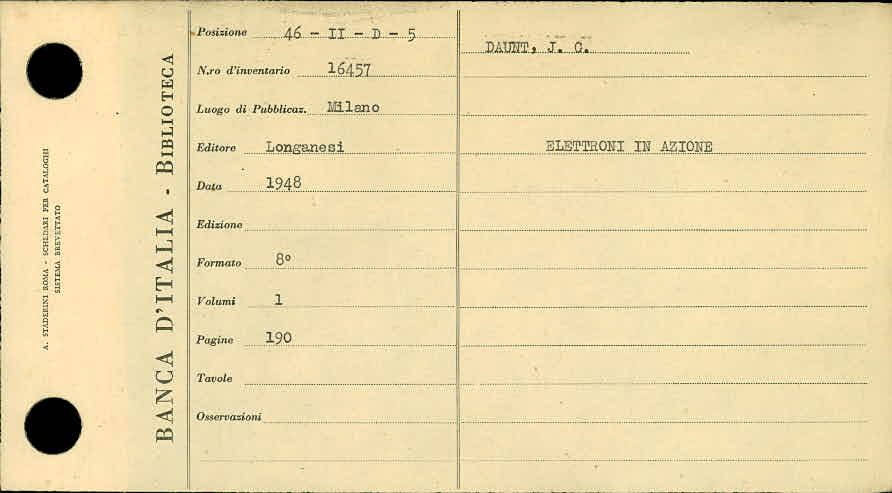 A. STADERINI ROMA - SCHEDARI PER CATALOGHI
SISTEMA BREVETTATO
BANCA D'ITALIA - BIBLIOTECA
Posizione 46 - II - D - 5
N.ro d'inventario 16457
Luogo di Pubblicaz. Milano
Editore Longanesi
Data 1948
Edizione
Formato 8°
Volumi 1
Pagine 190
Tavole
Osservazioni
DAUNT, J. C.
ELETTRONI IN AZIONE